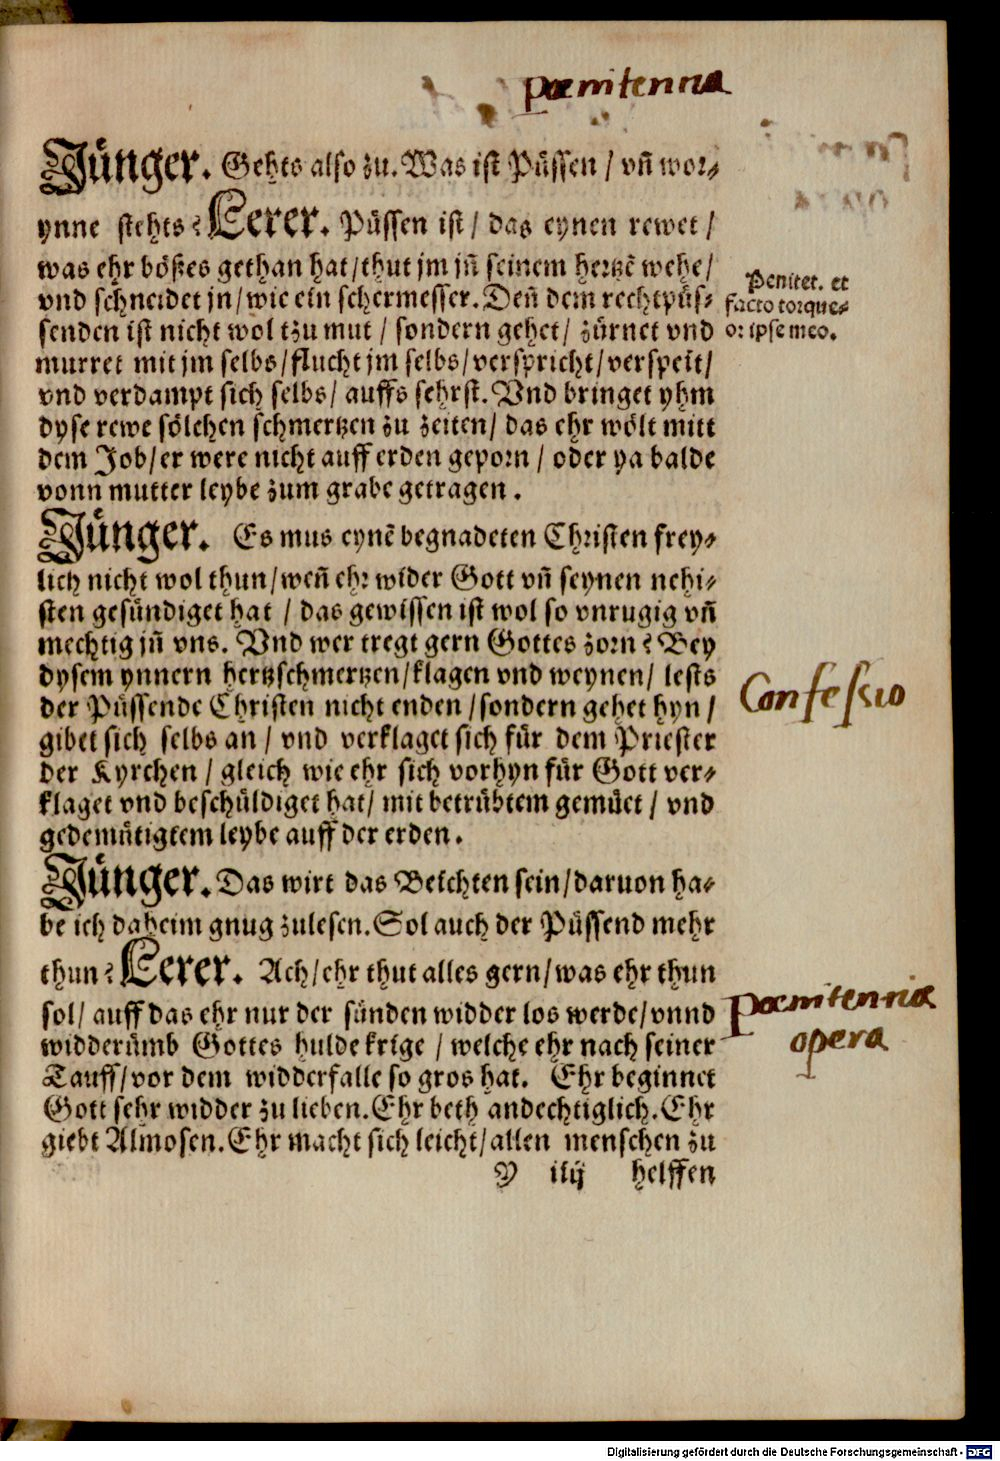 pœnitentia
Jünger. Gehts also zu. Was ist Püssen / vn̄ wor⸗
ynne stehts? Lerer. Püssen ist / das eynen rewet /
was ehr bößes gethan hat / thut jm jn̄ seinem hertzē wehe /
vnd schneidet jn / wie ein schermesser. Den̄ dem rechtpüs⸗
senden ist nicht wol tzu mut / sondern gehet / zürnet vnd
murret mit jm selbs / flucht jm selbs / verspricht / verspeit /
vnd verdampt sich selbs / auffs sehrst. Vnd bringet yhm
dyse rewe sölchen schmertzen zu zeiten / das ehr wölt mitt
dem Job / er were nicht auff erden geporn / oder ya balde
vonn mutter leybe zum grabe getragen.
Penitet. et
facto torque⸗
or ipse meo.
Jünger. Es mus eynē begnadeten Christen frey⸗
lich nicht wol thun / wen̄ ehr wider Gott vn̄ seynen nehi⸗
sten gesündiget hat / das gewissen ist wol so vnrugig vn̄
mechtig jn̄ vns. Vnd wer tregt gern Gottes zorn? Bey
dysem ynnern hertzschmertzen / klagen vnd weynen / lests
der Püssende Christen nicht enden / sondern gehet hyn /
gibet sich selbs an / vnd verklaget sich für dem Priester
der Kyrchen / gleich wie ehr sich vorhyn für Gott ver⸗
klaget vnd beschüldiget hat / mit betrübtem gemüet / vnd
gedemütigtem leybe auff der erden.
Confessio
Jünger. Das wirt das Beichten sein / daruon ha⸗
be ich daheim gnug zulesen. Sol auch der Püssend mehr
thun? Lerer. Ach / ehr thut alles gern / was ehr thun
sol / auff das ehr nur der sünden widder los werde / vnnd
widderümb Gottes hulde krige / welche ehr nach seiner
Tauff / vor dem widderfalle so gros hat. Ehr beginnet
Gott sehr widder zu lieben. Ehr beth andechtiglich. Ehr
giebt Almosen. Ehr macht sich leicht / allen menschen zu
pœnitentiæ
opera
Y iiij helffen
Digitalisierung gefördert durch die Deutsche Forschungsgemeinschaft - DFG